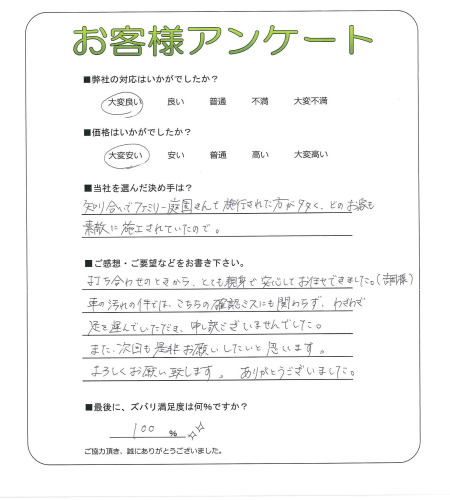 お客様アンケート
■弊社の対応はいかがでしたか？
大変良い 良い 普通 不満 大変不満
■価格はいかがでしたか？
大変安い 安い 普通 高い 大変高い
■当社を選んだ決め手は？
知り合いでファミリー庭園さんで施行された方が多く、どのお宅も
素敵に施工されていたので。
■ご感想・ご要望などをお書き下さい。
打ち合わせのときから、とても親身で安心してお任せできました。(
車の汚れの件では、こちらの確認ミスにも関わらず、わざわざ
足を運んでいただき、申し訳ございませんでした。
また、次回も是非お願いしたいと思います。
よろしくお願い致します。 ありがとうございました。
■最後に、ズバリ満足度は何％ですか？
100 ％
ご協力頂き、誠にありがとうございました。